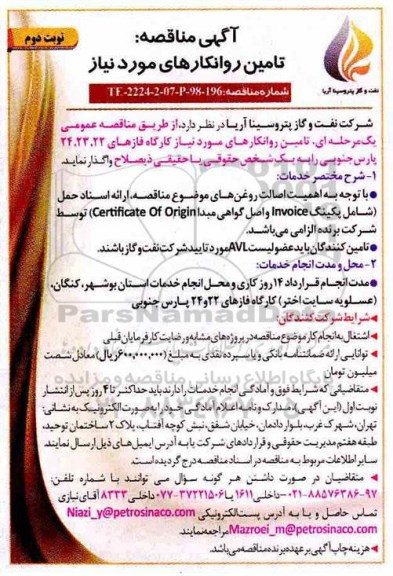 نوبت دوم
آگهی مناقصه:
تامین روانکارهای مورد نیاز
نفت و گاز پتروسینا آریا
شماره مناقصه: TE-2224-2-07-P-98-196
شرکت نفت و گاز پتروسینا آریا در نظر دارد، از طریق مناقصه عمومی
یک مرحله ای، تامین روانکارهای مورد نیاز کارگاه فازهای ۲۲،۲۳،۲۴
پارس جنوبی را به یک شخص حقوقی یا حقیقی ذیصلاح واگذار نماید.
۱- شرح مختصر خدمات:
با توجه به اهمیت اصالت روغن های موضوع مناقصه، ارائه اسناد حمل
(شامل پکینگ Invoice و اصل گواهی مبدا Certificate Of Origin) توسط
شرکت برنده الزامی می باشد.
تامین کنندگان باید عضو لیست AVL مورد تایید شرکت نفت و گاز باشند.
۲- محل و مدت انجام خدمات:
مدت انجام قرارداد ۱۴ روز کاری و محل انجام خدمات استان بوشهر، کنگان،
(عسلویه سایت اختر) کارگاه فازهای ۲۲ و ۲۴ پارس جنوبی
شرایط شرکت کنندگان:
اشتغال به انجام کار موضوع مناقصه در پروژه های مشابه و رضایت کارفرمایان قبلی
توانایی ارائه ضمانتنامه بانکی و یا سپرده نقدی به مبلغ (۶۰۰,۰۰۰,۰۰۰ ریال) معادل شصت
میلیون تومان
متقاضیانی که شرایط فوق و آمادگی انجام خدمات را دارند باید حداکثر تا ۴ روز پس از انتشار
نوبت اول (این آگهی) مدارک و نامه اعلام آمادگی خود را به صورت الکترونیک به نشانی:
تهران، شهرک غرب، بلوار دادمان، خیابان شفق، نبش کوچه آفتاب، پلاک ۲ ساختمان توحید،
طبقه هفتم مدیریت حقوقی و قراردادهای شرکت یا به آدرس ایمیل های ذیل ارسال نمایند.
سایر اطلاعات مربوط به مناقصه در اسناد مناقصه درج گردیده است.
متقاضیان در صورت داشتن هر گونه سؤال می توانند با شماره تلفن:
۰۲۱-۸۸۵۷۶۳۸۶-۹۷ داخلی ۱۶۱۱ یا ۰۷۷-۳۷۲۲۱۵۰۶ داخلی ۸۳۳۳ آقای نیازی
تماس حاصل و یا به آدرس پست الکترونیکی Niazi_y@petrosinaco.com
Mazroei_m@petrosinaco.com مراجعه نمایند.
هزینه چاپ آگهی بر عهده برنده مناقصه می باشد.
ParsNamadData
پایگاه اطلاع رسانی مناقصه و مزایده